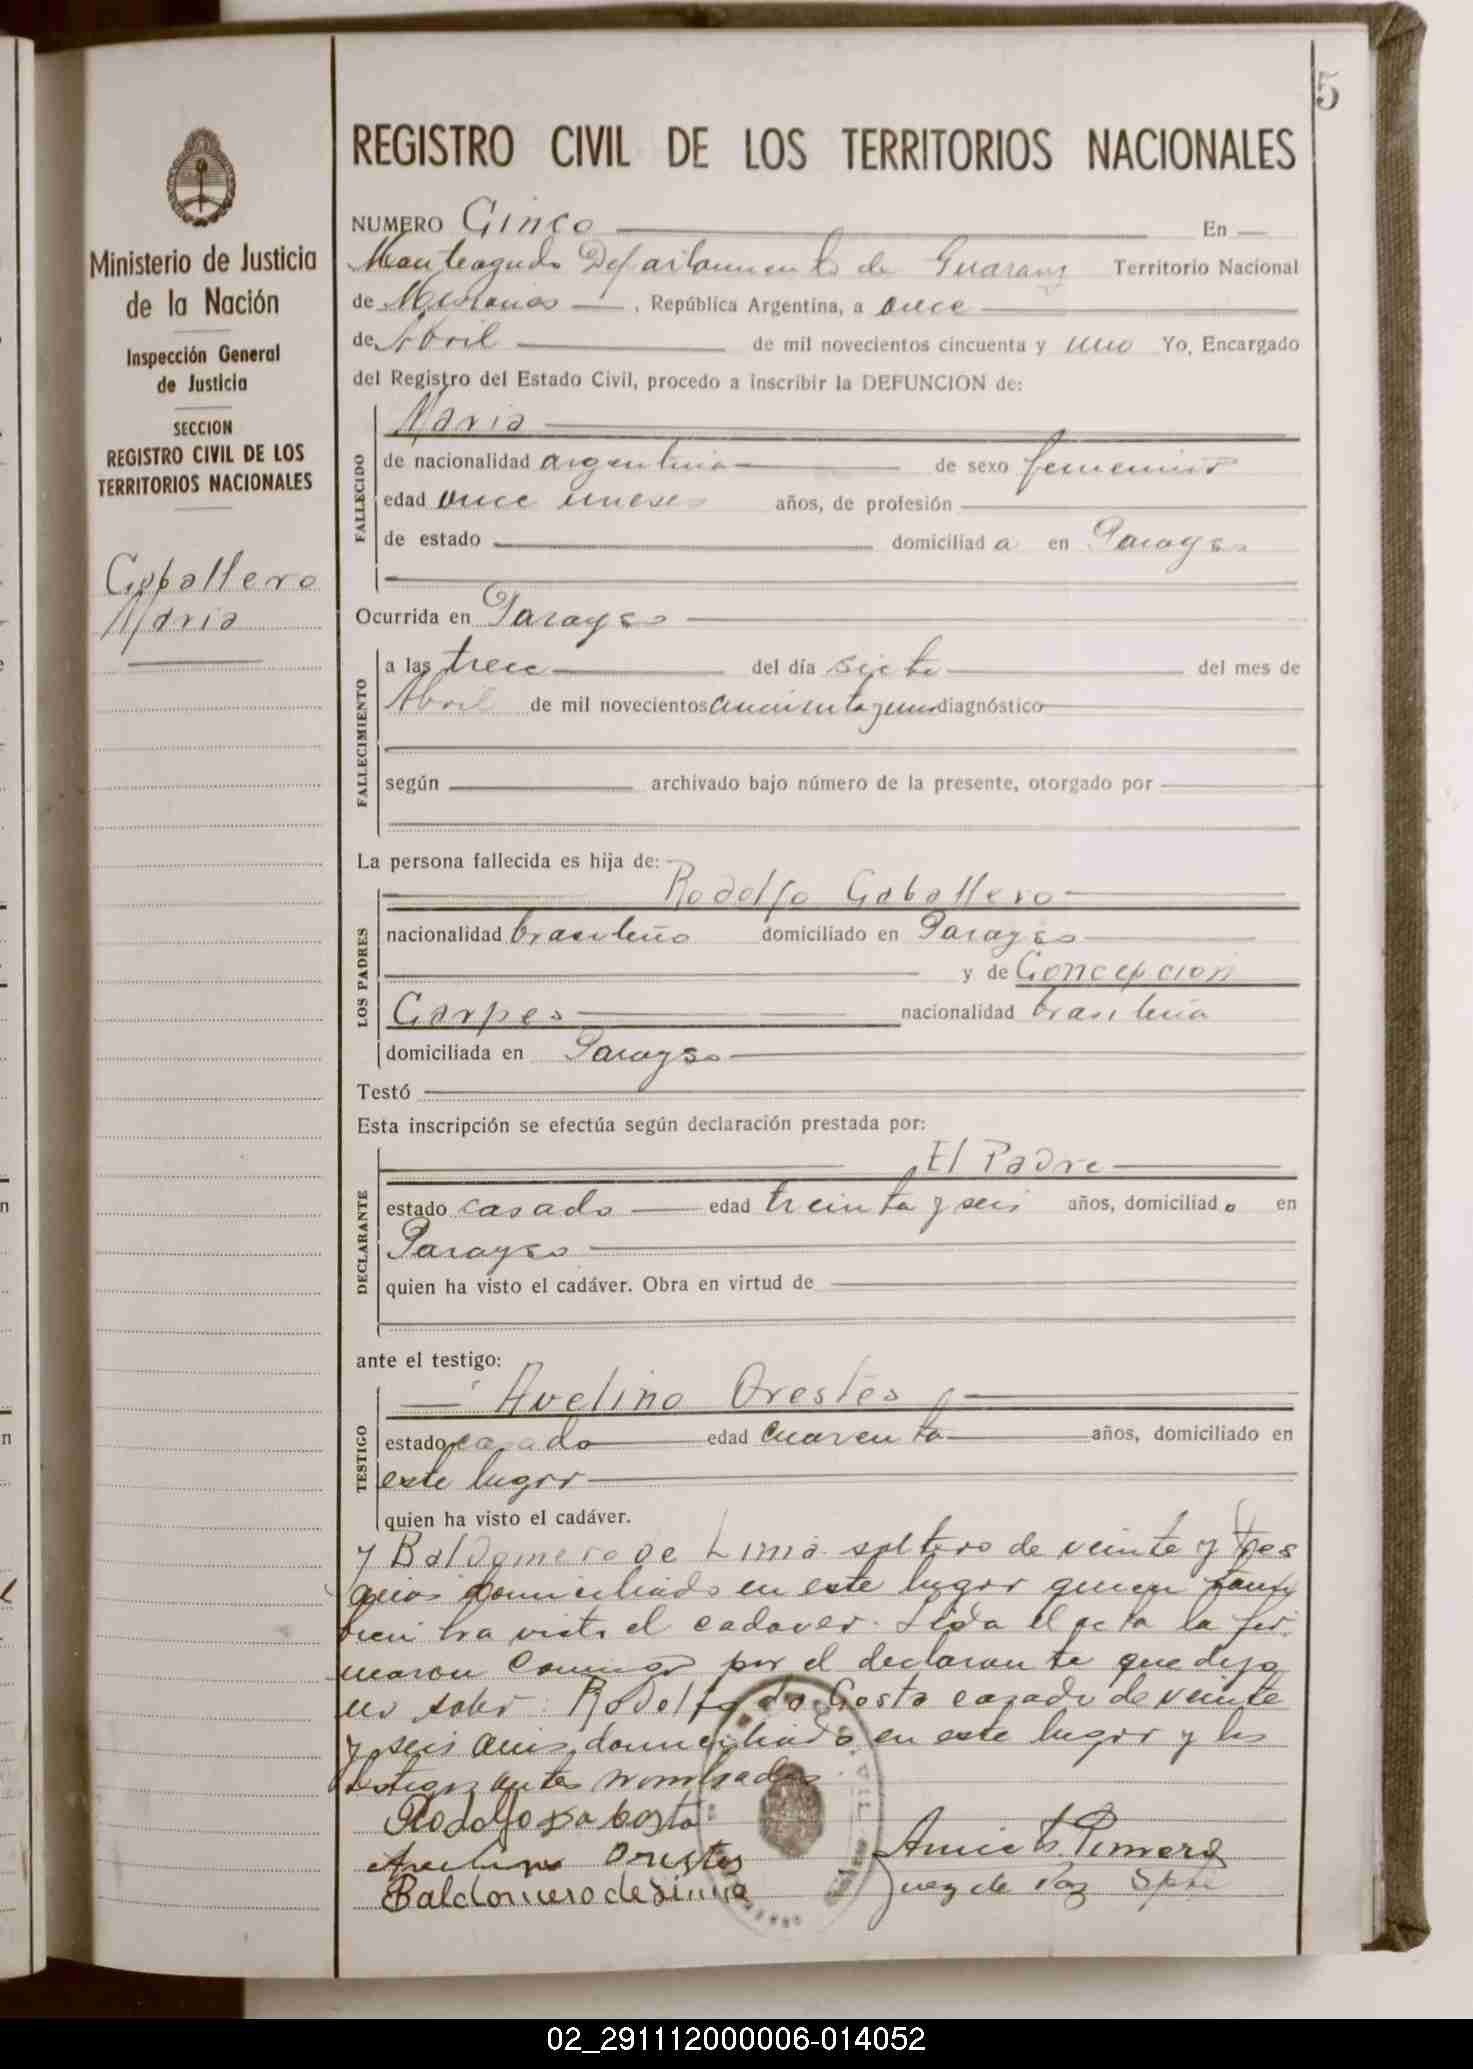 5
REGISTRO CIVIL DE LOS TERRITORIOS NACIONALES
Ministerio de Justicia
de la Nación
Inspección General
de Justicia
SECCION
REGISTRO CIVIL DE LOS
TERRITORIOS NACIONALES
Caballero
Maria
NUMERO Cinco En
Monteagudo Departamento de Guarany Territorio Nacional
de Misiones , República Argentina, a once
de Abril de mil novecientos cincuenta y uno Yo, Encargado
del Registro del Estado Civil, procedo a inscribir la DEFUNCION de:
FALLECIDO
Maria
de nacionalidad argentina de sexo femenino
edad once meses años, de profesión
de estado domiciliad a en Parayso
Ocurrida en Parayso
FALLECIMIENTO
a las trece del día siete del mes de
Abril de mil novecientos cincuenta y uno diagnóstico
según archivado bajo número de la presente, otorgado por
La persona fallecida es hija de:
LOS PADRES
Rodolfo Caballero
nacionalidad brasileño domiciliado en Parayso
y de Concepcion
Carpes nacionalidad brasileña
domiciliada en Parayso
Testó
Esta inscripción se efectúa según declaración prestada por:
DECLARANTE
El Padre
estado casado edad treinta y seis años, domiciliad o en
Parayso
quien ha visto el cadáver. Obra en virtud de
ante el testigo:
TESTIGO
Avelino Orestes
estado casado edad cuarenta años, domiciliado en
este lugar
quien ha visto el cadáver.
y Baldomero de Lima soltero de veinte y tres
años domiciliado en este lugar quien tam
bien ha visto el cadaver. Leida el acta la fir
maron conmigo por el declarante que dijo
no saber: Rodolfo da Costa casado de veinte
y seis años, domiciliado en este lugar y los
testigos antes nombrados
Rodolfo da Costa
Avelino Orestes
Baldomero de Lima
Juez de Paz Sple
02_291112000006-014052